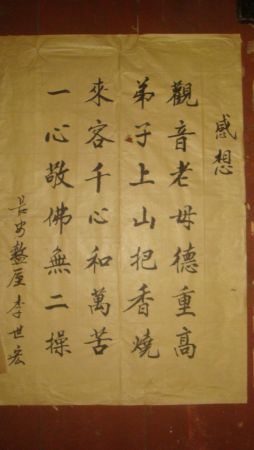 感想
觀音老母德重高
弟子上山把香燒
來客千心和萬苦
一心敬佛無二操
長安盩厔李世宏